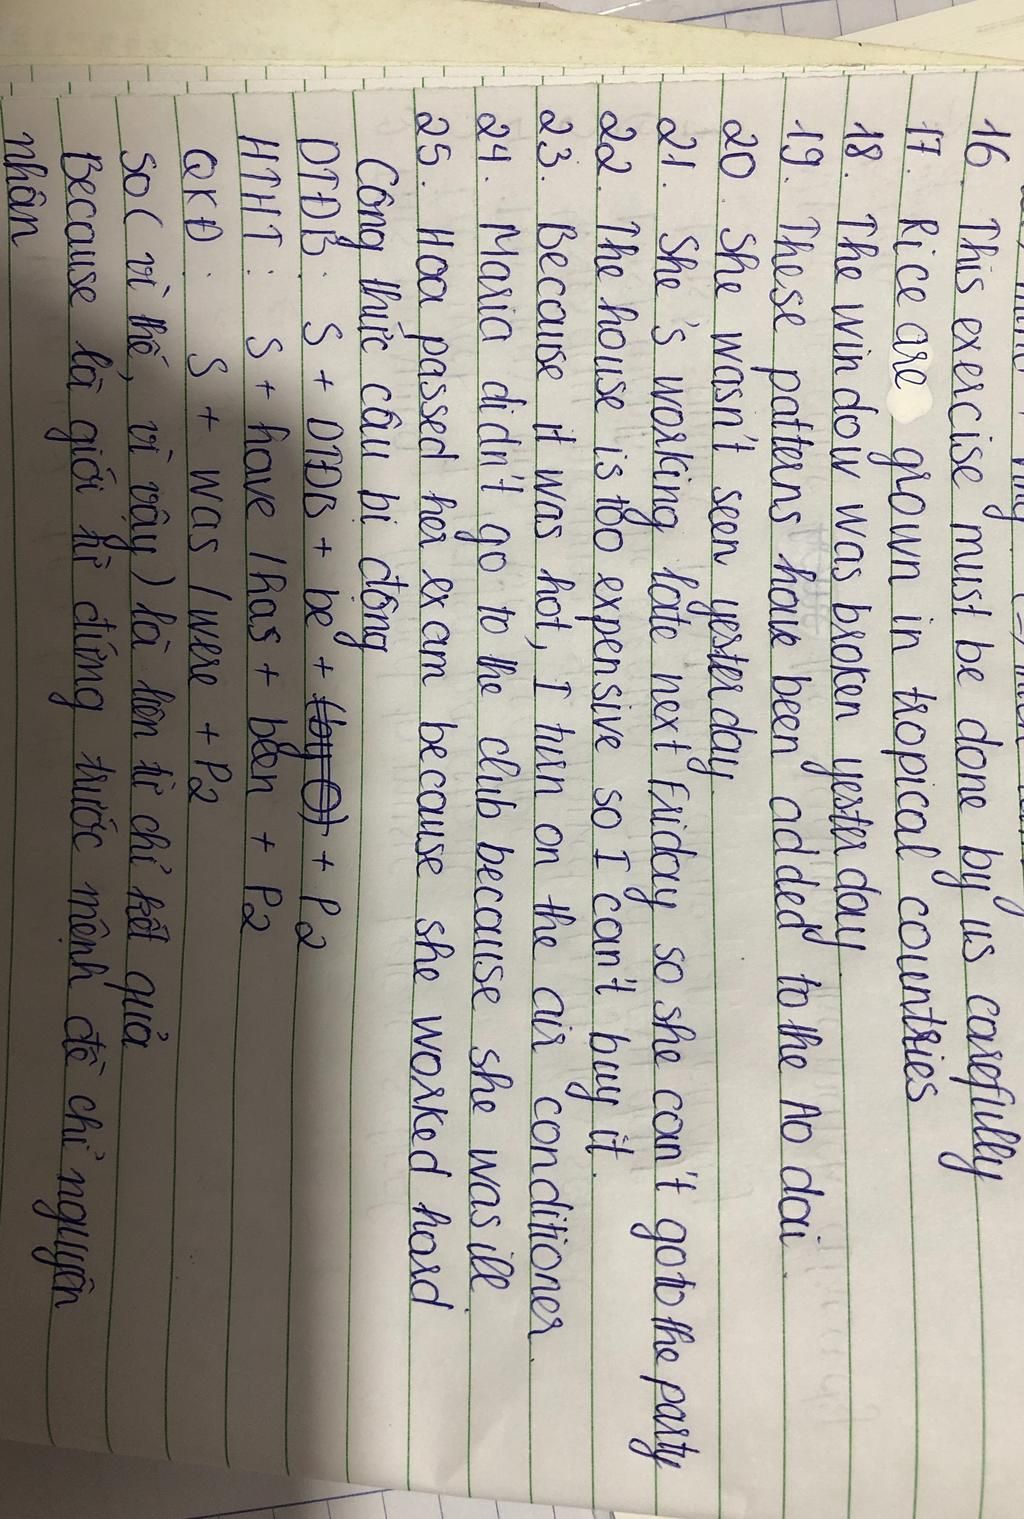 16. This exercise must be done by us carefully
17. Rice are grown in tropical countries
18. The window was broken yesterday
19. These patterns have been added to the Ao dai
20 She wasn't seen yesterday
21. She's working late next Friday so she can't go to the party
22. The house is too expensive so I can't buy it.
23. Because it was hot, I turn on the air conditioner.
24. Maria didn't go to the club because she was ill.
25. Hoa passed her exam because she worked hard
Công thức câu bị động
ĐTĐB: S + ĐTĐB + be + (by O) + P2
HTHT: S + have / has + been + P2
QKĐ: S + was / were + P2
So ( vì thế, vì vậy) là liên từ chỉ kết quả
Because là giới từ đứng trước mệnh đề chỉ nguyên
nhân